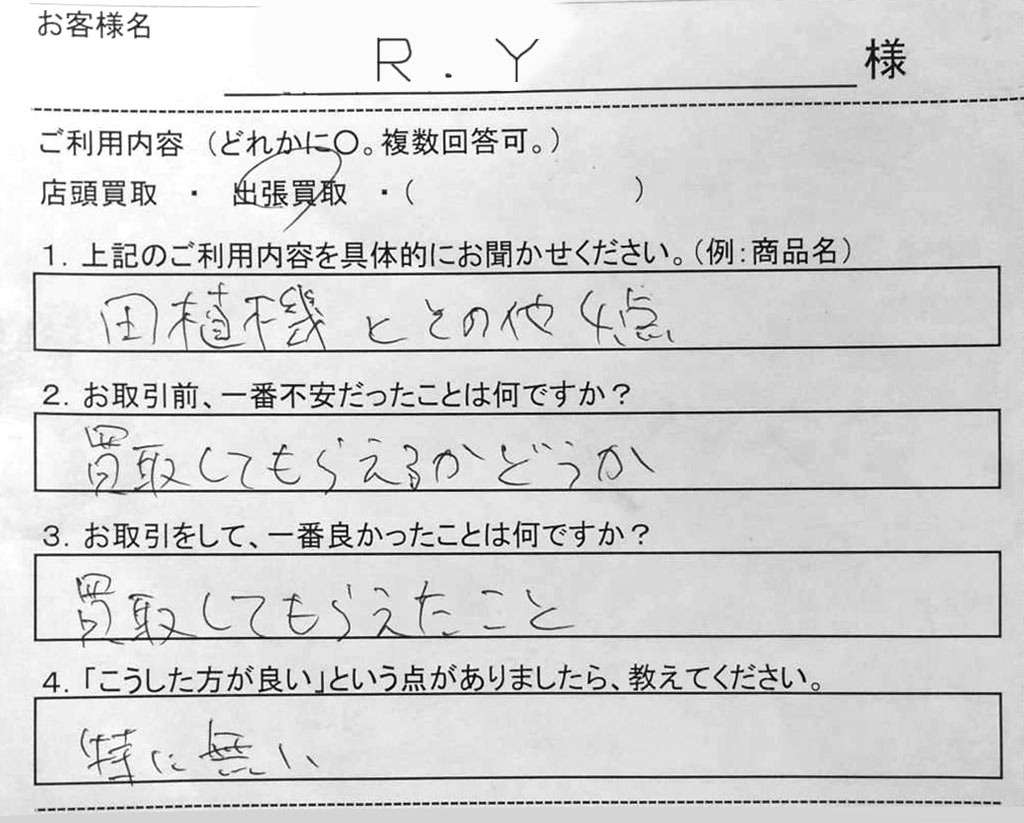 お客様名
R.Y 様
ご利用内容 (どれかに〇。複数回答可。)
店頭買取 ・ 出張買取 ・( )
1. 上記のご利用内容を具体的にお聞かせください。(例:商品名)
田植機とその他4点
2. お取引前、一番不安だったことは何ですか?
買取してもらえるかどうか
3. お取引をして、一番良かったことは何ですか?
買取してもらえたこと
4. 「こうした方が良い」という点がありましたら、教えてください。
特に無い